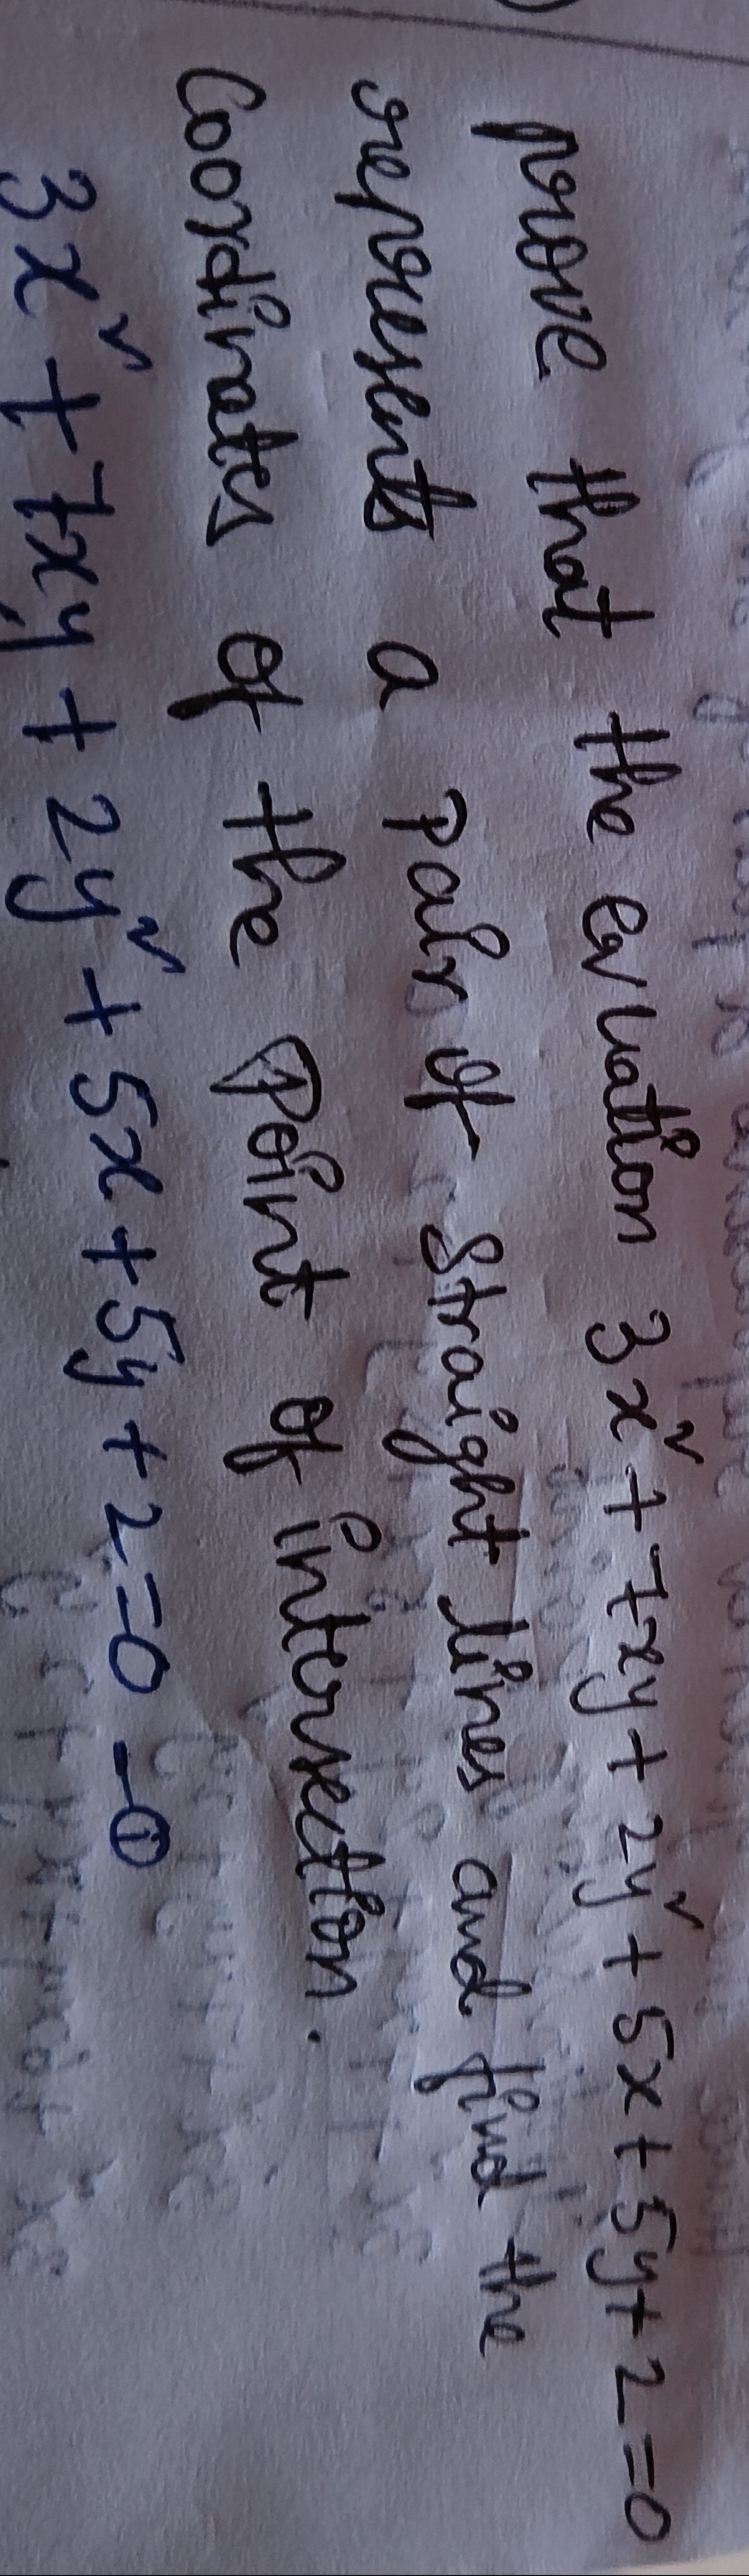 prove that the equation 3x² + 7xy + 2y² + 5x + 5y + 2 = 0
represents a pair of straight lines and find the
coordinates of the point of intersection.
3x² + 7xy + 2y² + 5x + 5y + 2 = 0 - ①